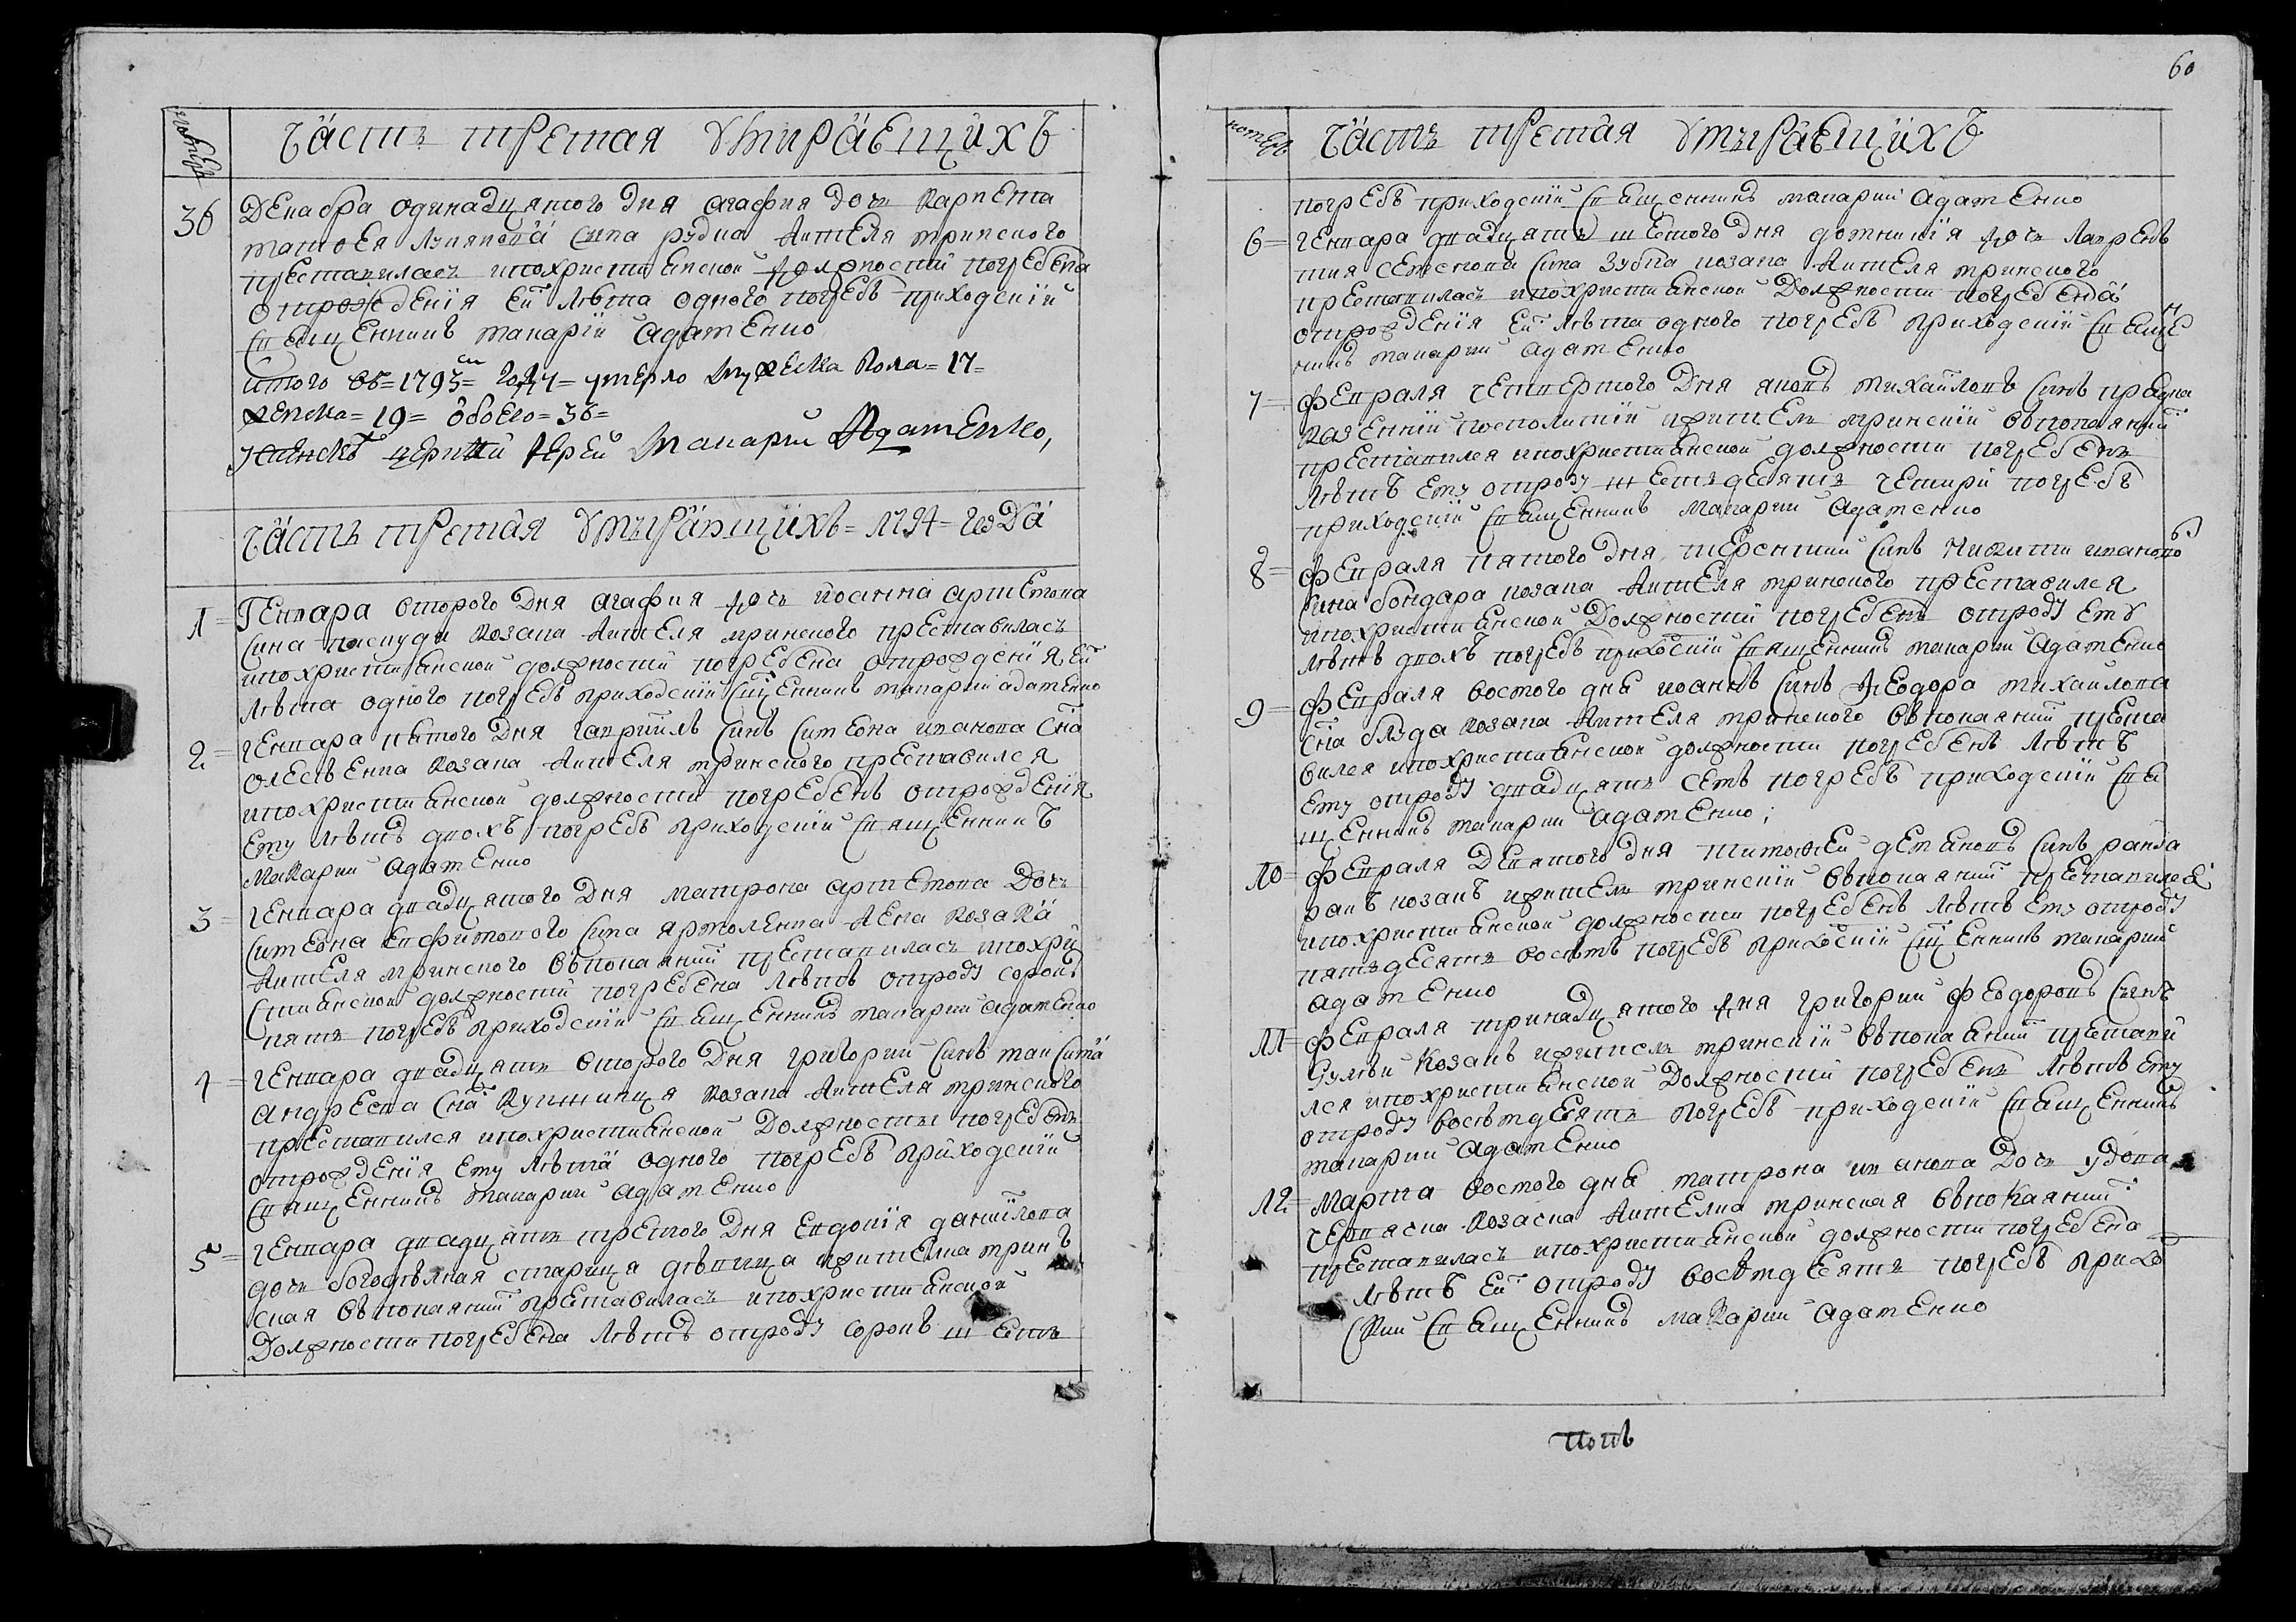 часть третая умираещихъ
36 Декабра одинадцятого дня агафия дочь карпенка
матфея лукянова сина рудка жителя мринского
преставилась и похристиянской должности погребена
от рождения ей лѣта одного погребъ приходскій
священникъ макарій адаменко
итого въ =1793= году = умерло мужеска пола =17=
женска =19= обоего =36=
успенскъ церкви іерей Макарий Адаменко,
часть третая умърающихъ =1794= года
1= Генвара второго дня агафия дочь иоанна артемова
сина козака жителя мринского преставилась
и похристиянской должности погребена от рождения ей
лѣта одного погребъ приходскій сщенникъ макарий адаменко
2= генвара пятого дня гавриилъ синъ симеона иванова сна
олексѣенка козака жителя мринского преставился
и похристиянской должности погребенъ от рождения
ему лѣтъ двохъ погребъ приходскій священникъ
макарий адаменко
3= генвара двадцятого дня матрона артемова дочь
симеона евфимового сина ярмоленка жена козака
жителя мринского въ покаянии преставилась и похри
стиянской должности погребена лѣтъ от роду сорокъ
пять погребъ приходскій священникъ макарий адаменко
4= генвара двадцять второго дня григорий синъ максима
андреева сна козака жителя мринского
преставился и похристиянской должносты погребенъ
от рождения ему лѣта одного погребъ приходскій
священникъ макарий адаменко
5= генвара двадцять третого дня евдокия данилова
дочь старица дѣвица жителка мринъ
ская въ покаянии преставилась и похристиянской
должности погребена лѣтъ от роду сорокъ шесть
60
номеръ
часть третая умърающихъ
погребъ приходскій священникъ макарий адаменко
6= генвара двадцять шестого дня домникия дочь лаврен
тия семенова сина зубка козака жителя мринского
преставилась и похристиянской должности погребена
от рождения ей лѣта одного погребъ приходскій свяще
нникъ макарий адаменко
7= февраля четвертого дня яковъ михайловъ синъ
посполитій жителъ мринскій въ покаянии
преставился и похристиянской должности погребенъ
лѣтъ ему от роду шестьдесять четири погребъ
приходскій священникъ макарий адаменко
8= февраля пятого дня терентий синъ никити иваново
сина бондара козака жителя мринского преставился
и похристиянской должности погребенъ от роду ему
лѣтъ двохъ погребъ приходскій священникъ макарий адаменко
9= февраля восмого дня иоанъ синъ феодора михайлова
сна козака жителя мринского въ покаянии преста
вился и похристиянской должности погребенъ лѣтъ
ему от роду двадцять семъ погребъ приходскій свя
щенникъ макарий адаменко;
10= февраля девятого дня тимофей демяновъ синъ
козакъ жителъ мринскій въ покаянии преставился
и похристиянской должности погребенъ лѣтъ ему от роду
пятьдесять восѣмъ погребъ приходскій сщенникъ макарий
адаменко
11= февраля тринадцятого дня григорий феодоровъ синъ
козакъ жителъ мринскій въ покаянии престави
лся и похристиянской должности погребенъ лѣтъ ему
от роду восѣмдесять погребъ приходскій священникъ
макарий адаменко
12= марта восмого дня матрона иванова дочь удова
козачка жителка мринская въ покаянии
преставилась и похристиянской должности погребена
лѣтъ ей от роду восѣмдесять погребъ прихо
ский священникъ макарий адаменко